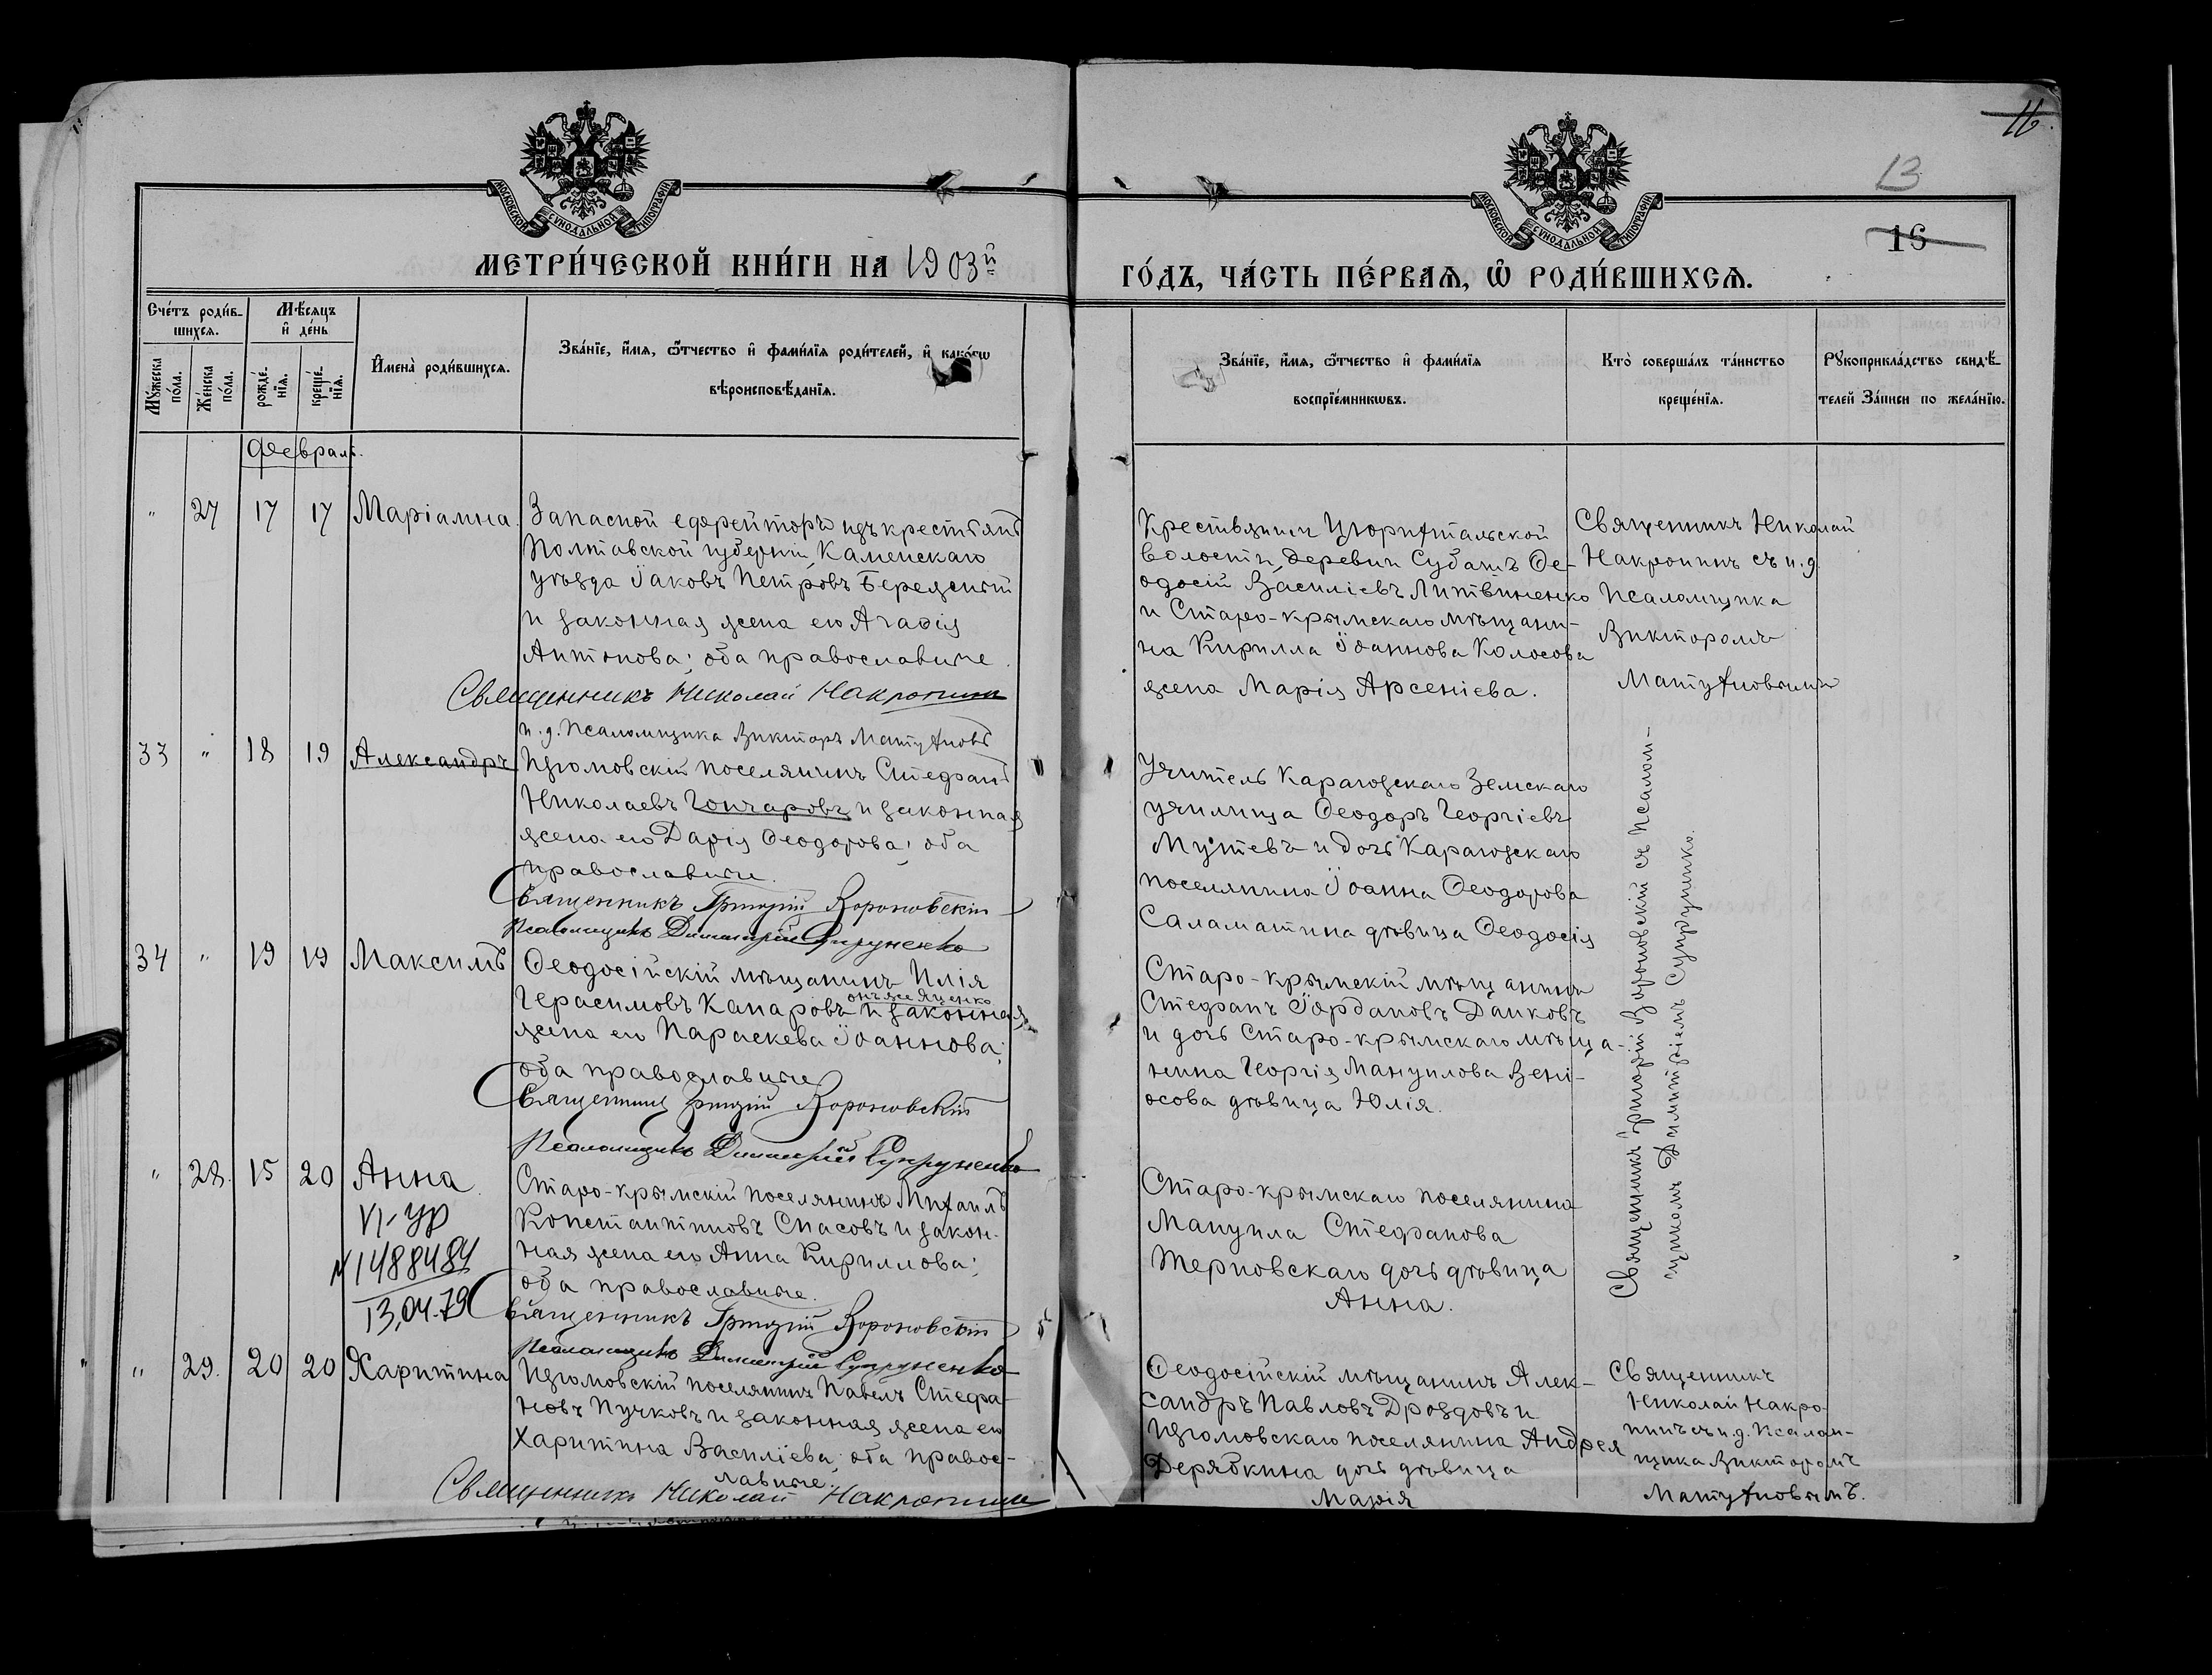 16
13
16
МОСКОВСКОЙ СѴНОДАЛЬНОЙ ТИПОГРАФІИ
МОСКОВСКОЙ СѴНОДАЛЬНОЙ ТИПОГРАФІИ
МЕТРИ́ЧЕСКОЙ КНИ́ГИ НА 1903й
ГО́ДЪ, ЧА́СТЬ ПЕ́РВАѦ, Ѡ҆ РОДИ́ВШИХСѦ.
Сче́тъ роди́в-
шихсѧ.
Мѣ́сѧцъ
и҆ де́нь
Мꙋ́жеска
по́ла.
Же́нска
по́ла.
рожде́-
нїѧ.
креще́-
нїѧ.
И҆мена̀ роди́вшихсѧ.
Зва́нїе, и҆́мѧ, ѻ҆́тчество и҆ фами́лїѧ роди́телей, и҆ како́гѡ
вѣроисповѣ́данїѧ.
Зва́нїе, и҆́мѧ, ѻ҆́тчество и҆ фами́лїѧ
воспрїе́мникѡвъ.
Кто̀ соверша́лъ та́инство
креще́нїѧ.
Рꙋкоприкла́дство свидѣ́-
телей за́писи по жела́нїю.
Февраль.
" 27 17 17 Маріамна.
Запасной ефрейторъ изъ крестьянъ
Полтавской губерніи, Каменскаго
уѣзда Іаковъ Петровъ Бережный
и законная жена его Агафія
Антонова; оба православные.
Священникъ Николай Накропинъ
и. д. Псаломщика Викторъ Матухновъ
Крестьянин Цюрихтальской
волости, деревни Субашъ Ѳе-
одосій Василіевъ Литвиненко
и Старо-крымскаго мѣщани-
на Кирилла Іоаннова Колосова
жена Марія Арсеніева.
Священникъ Николай
Накропинъ съ и. д.
Псаломщика
Викторомъ
Матухновымъ
33 " 18 19 Александръ
Изюмовскій поселянинъ Стефанъ
Николаевъ Гончаровъ и законная
жена его Дарія Ѳеодорова; оба
православные.
Священникъ Григорій Вороновскій
Псаломщикъ Димитрій Супруненко
Учитель Карагозскаго Земскаго
училища Ѳеодоръ Георгіевъ
Мутевъ и дочь Карагозскаго
поселянина Іоанна Ѳеодорова
Саламатина дѣвица Ѳеодосія
34 " 19 19 Максимъ
Ѳеодосійскій мѣщанинъ Илія
Герасимовъ Капаровъ онъ же Яценко и законная
жена его Параскева Іоаннова;
оба православные
Священникъ Григорій Вороновскій
Псаломщикъ Димитрій Супруненко
Старо-крымскій мѣщанинъ
Стефанъ Іордановъ Данковъ
и дочь Старо-крымскаго мѣща-
нина Георгія Мануилова Вені-
осова дѣвица Юлія.
Священникъ Григорій Вороновскій съ Псалом-
щикомъ Димитріемъ Супруненко.
" 28. 15 20 Анна
VI-УР
№1488484
13,04.79
Старо-крымскій поселянинъ Михаилъ
Константиновъ Спасовъ и закон-
ная жена его Анна Кириллова;
оба православные.
Священникъ Григорій Вороновскій
Псаломщикъ Димитрій Супруненко
Старо-крымскаго поселянина
Мануила Стефанова
Терновскаго дочь дѣвица
Анна.
" 29. 20 20 Харитина
Изюмовскій поселянинъ Павелъ Стефа-
новъ Пучковъ и законная жена его
Харитина Василіева; оба правос-
лавные.
Священникъ Николай Накропинъ
Ѳеодосійскій мѣщанинъ Алек-
сандръ Павловъ Дроздовъ и
Изюмовскаго поселянина Андрея
Дерябкина дочь дѣвица
Марія
Священникъ
Николай Накро-
пинъ съ и. д. Псалом-
щика Викторомъ
Матухновымъ.